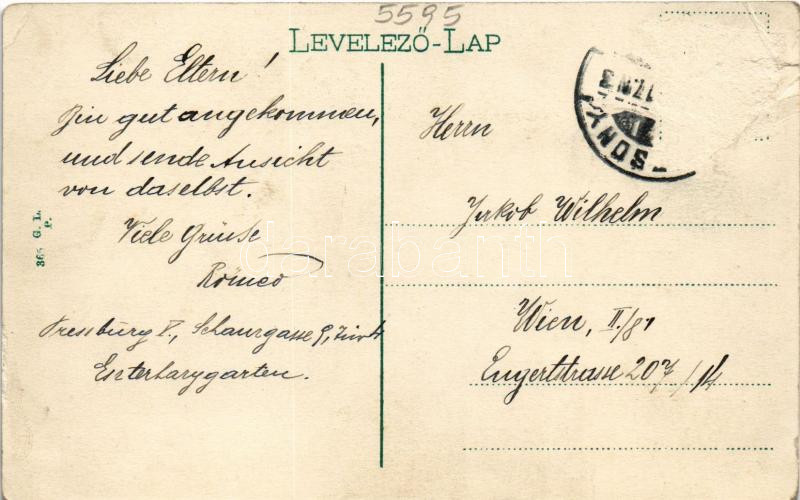 5595
LEVELEZŐ-LAP
Liebe Eltern!
Bin gut angekommen,
und sende Ansicht
von daselbst.
Viele Grüsse
Römeo
Pressburg V., Schanzgasse 9,
Eszterházygarten.
G. L.
P.
Herrn
Jakob Wilhelm
Wien, II./8
Engertstrasse 207/14
SONY
darabanth